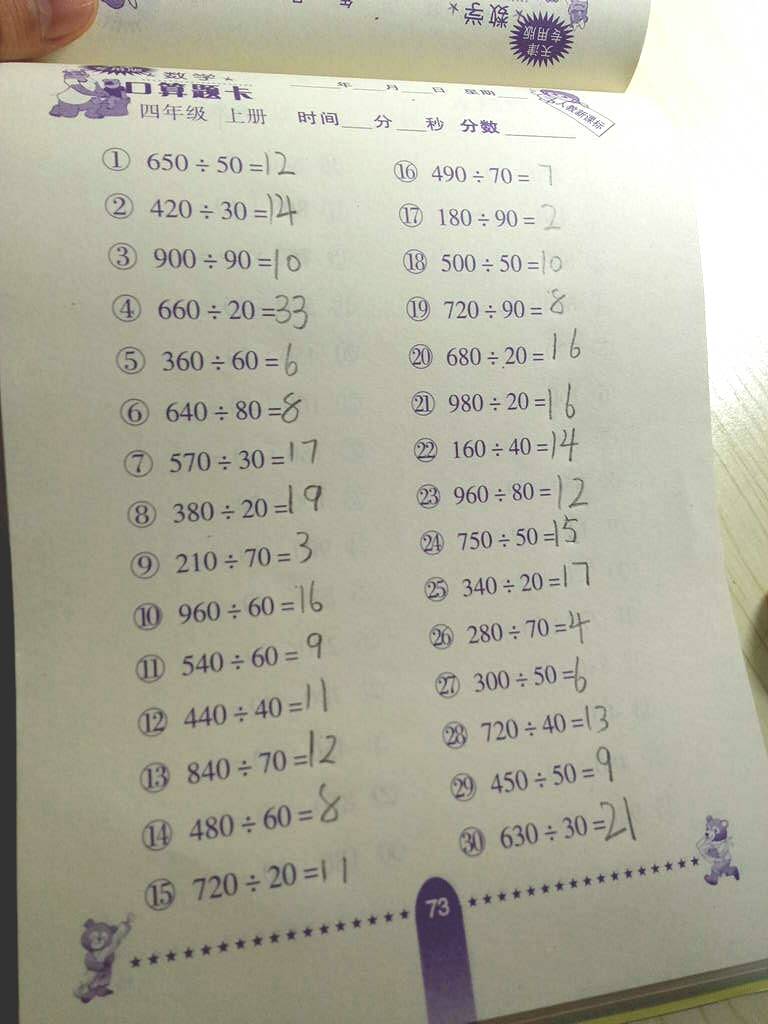 数学
天津
专用版
年
数学
口算题卡
年 月 日 星期
人教新课标
四年级 上册 时间 分 秒 分数
① 650÷50=12
② 420÷30=14
③ 900÷90=10
④ 660÷20=33
⑤ 360÷60=6
⑥ 640÷80=8
⑦ 570÷30=17
⑧ 380÷20=19
⑨ 210÷70=3
⑩ 960÷60=16
⑪ 540÷60=9
⑫ 440÷40=11
⑬ 840÷70=12
⑭ 480÷60=8
⑮ 720÷20=11
⑯ 490÷70=7
⑰ 180÷90=2
⑱ 500÷50=10
⑲ 720÷90=8
⑳ 680÷20=16
㉑ 980÷20=16
㉒ 160÷40=14
㉓ 960÷80=12
㉔ 750÷50=15
㉕ 340÷20=17
㉖ 280÷70=4
㉗ 300÷50=6
㉘ 720÷40=13
㉙ 450÷50=9
㉚ 630÷30=21
73